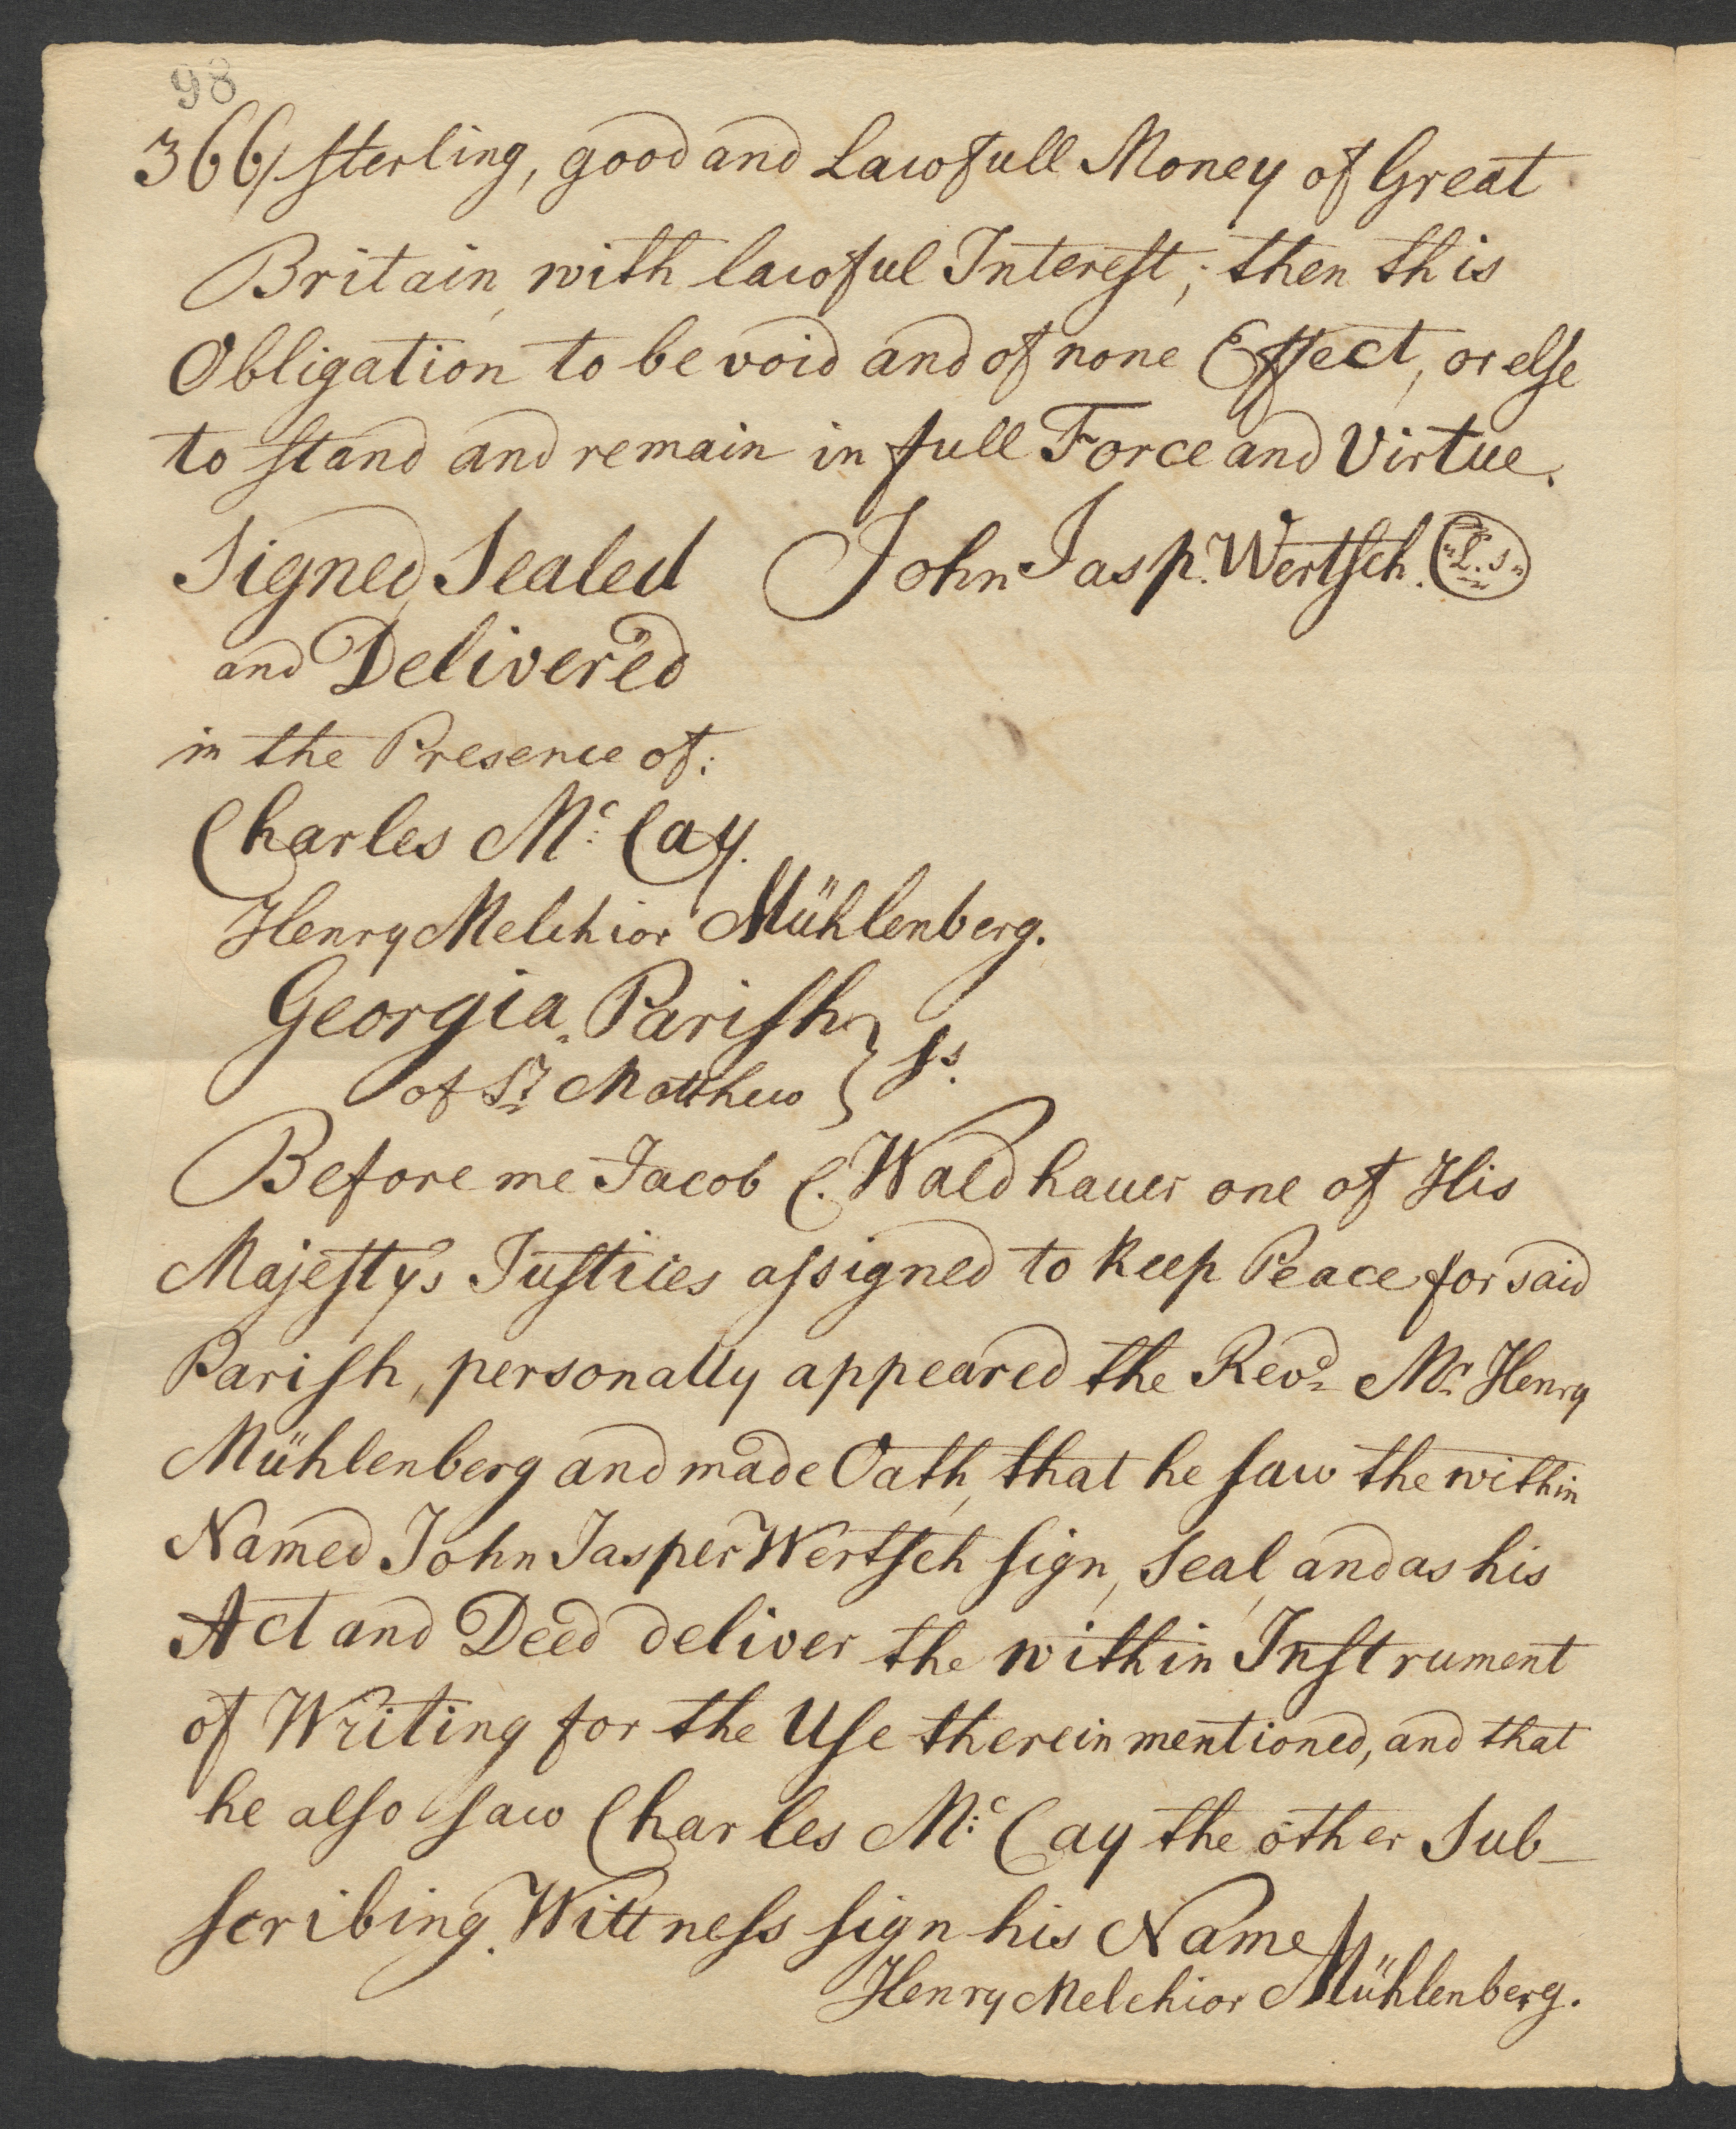 98
366/ sterling, good and Lawfull Money of Great
Britain, with lawful Interest, then this
Obligation to be void and of none Effect, or else
to stand and remain in full Force and Virtue.
Signed, Sealed John Jasp. Wertsch. L.S.
and Delivered
in the Presence of:
Charles Mc. Cay.
Henry Melchior Mühlenberg.
Georgia, Parish } ss.
of St. Matthew
Before me Jacob C. Waldhauer one of His
Majestys Justices assigned to keep Peace for said
Parish, personally appeared the Revd. Mr. Henry
Mühlenberg and made Oath, that he saw the within
Named John Jasper Wertsch sign, seal, and as his
Act and Deed deliver the within Instrument
of Writing for the Use therein mentioned, and that
he also saw Charles Mc. Cay the other Sub-
scribing Wittness sign his Name
Henry Melchior Mühlenberg.